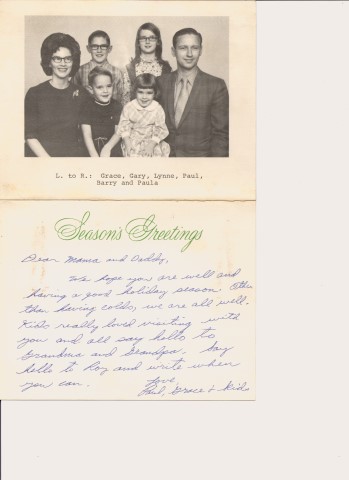 L. to R.: Grace, Gary, Lynne, Paul,
Barry and Paula
Season's Greetings
Dear Mama and Daddy,
We hope you are well and
having a good holiday season Other
than having colds, we are all well.
Kids really loved visiting with
you and all say hello to
Grandma and Grandpa. Say
hello to Roy and write when
you can.
Love,
Paul, Grace & Kids